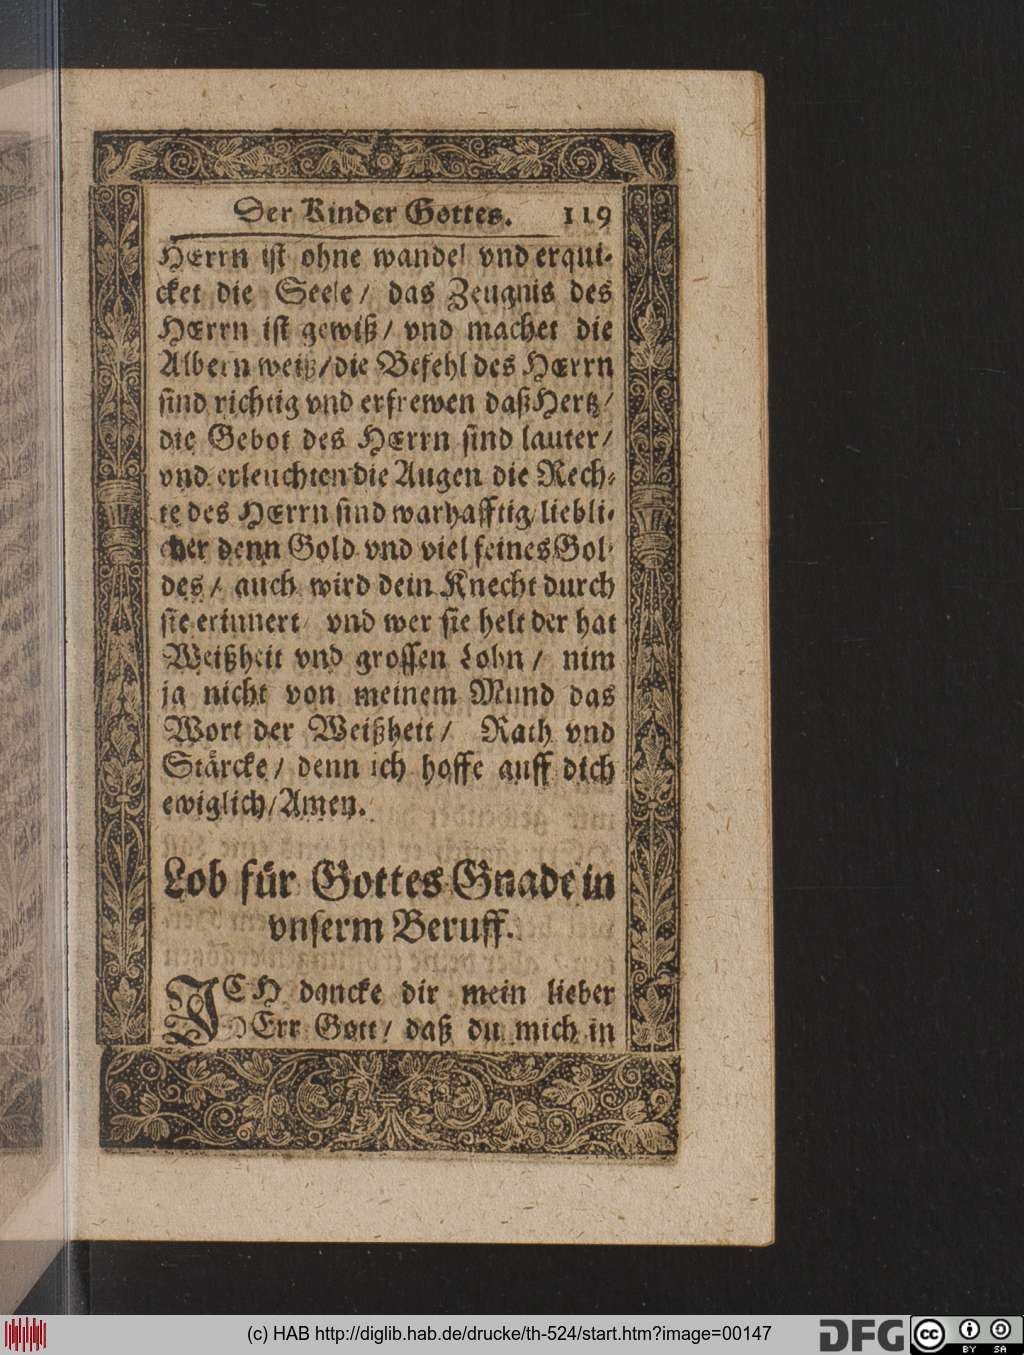 Der Kinder Gottes. 119
HErrn ist ohne wandel vnd erqui-
cket die Seele / das Zeugnis des
HErrn ist gewiß / vnd machet die
Albern weiß / die Befehl des HErrn
sind richtig vnd erfrewen daß Hertz /
die Gebot des HErrn sind lauter /
vnd erleuchten die Augen die Rech-
te des HErrn sind warhafftig / liebli-
cher denn Gold vnd viel feines Gol-
des / auch wird dein Knecht durch
sie erinnert / vnd wer sie helt der hat
Weißheit vnd grossen Lohn / nim
ja nicht von meinem Mund das
Wort der Weißheit / Rath vnd
Stärcke / denn ich hoffe auff dich
ewiglich / Amen.
Lob für Gottes Gnade in
vnserm Beruff.
ICH dancke dir mein lieber
HErr Gott / daß du mich in
(c) HAB http://diglib.hab.de/drucke/th-524/start.htm?image=00147
DFG
cc
BY SA